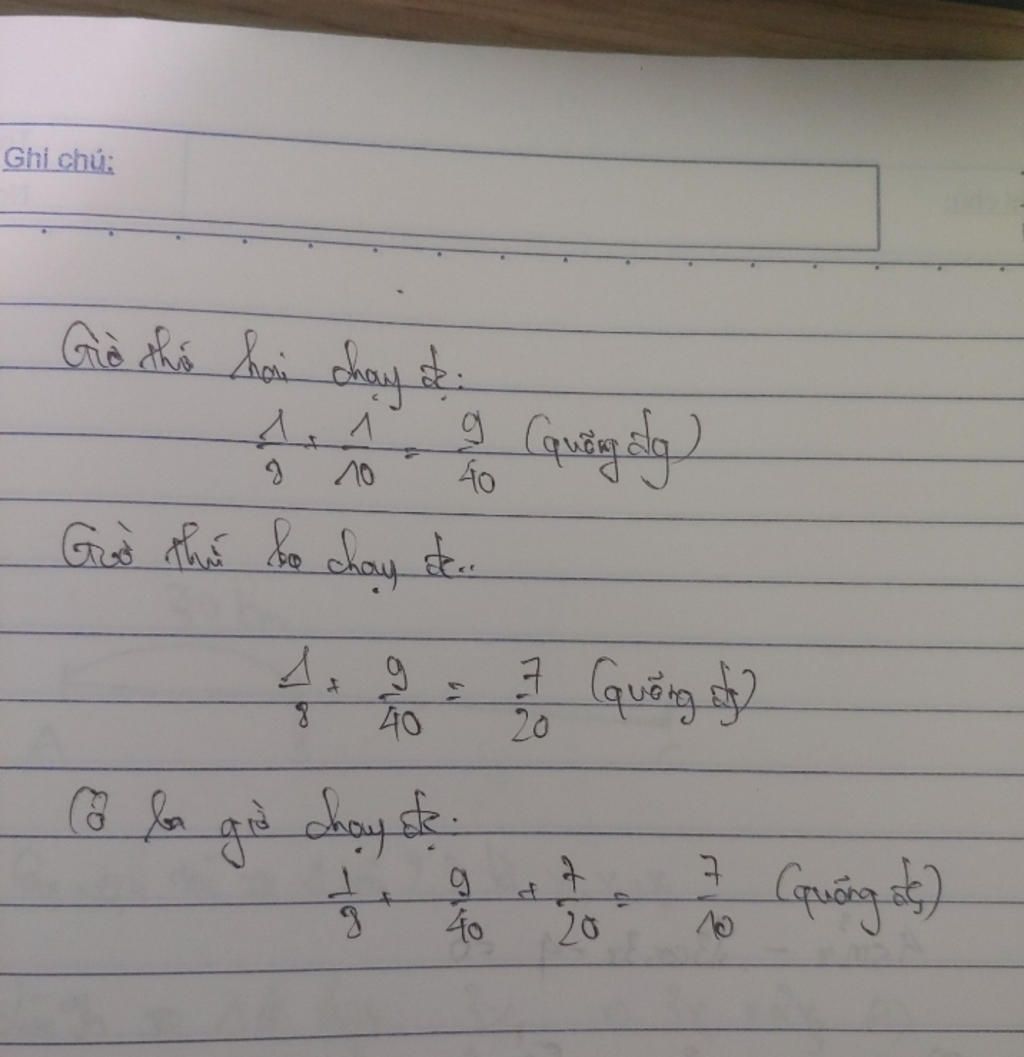 Ghi chú:
Giờ thứ hai chạy đc:
1/8 + 1/10 = 9/40 (quãng đg)
Giờ thứ ba chạy đc:
1/8 + 9/40 = 7/20 (quãng đg)
Cả ba giờ chạy đc:
1/8 + 9/40 + 7/20 = 7/10 (quãng đg)